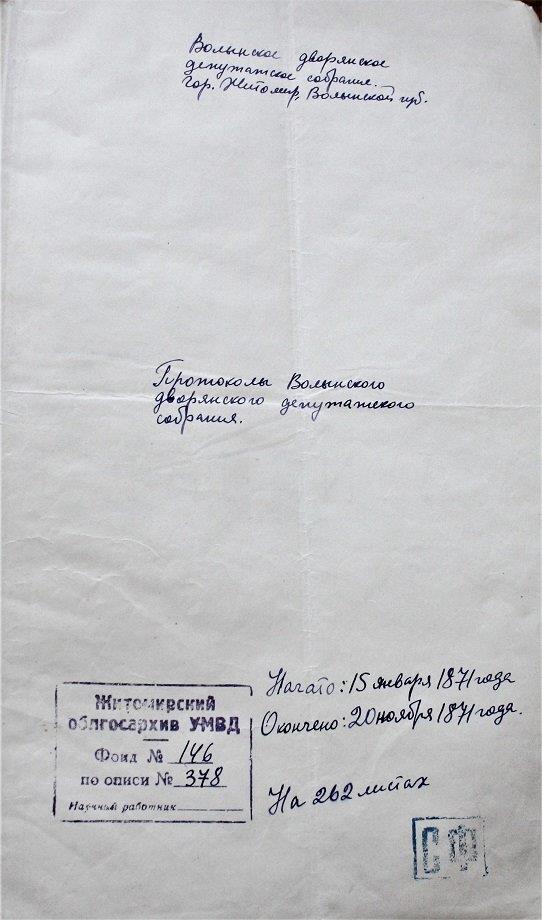 Волынское дворянское
депутатское собрание.
гор. Житомир, Волынской губ.
Протоколы Волынского
дворянского депутатского
собрания.
Начато: 15 января 1871 года
Окончено: 20 ноября 1871 года.
На 262 листах
Житомирский
облгосархив УМВД
Фонд № 146
по описи № 378
Научный работник
СФ